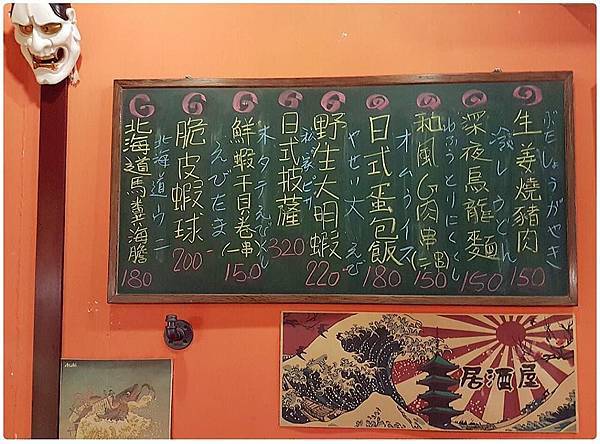 生姜燒豬肉
ぶたしょうがやき
150
深夜烏龍麵
冷しうどん
150
和風G肉串(二串)
わふうとりにくくし
150
日式蛋包飯
オムライス
180
野生大明蝦
やせい大えび
220
日式披薩
320
鮮蝦干貝卷(一串)
ホタテえびくし
150
脆皮蝦球
えびたま
200-
北海道馬糞海膽
北海道ウニ
180
居酒屋
Asahi